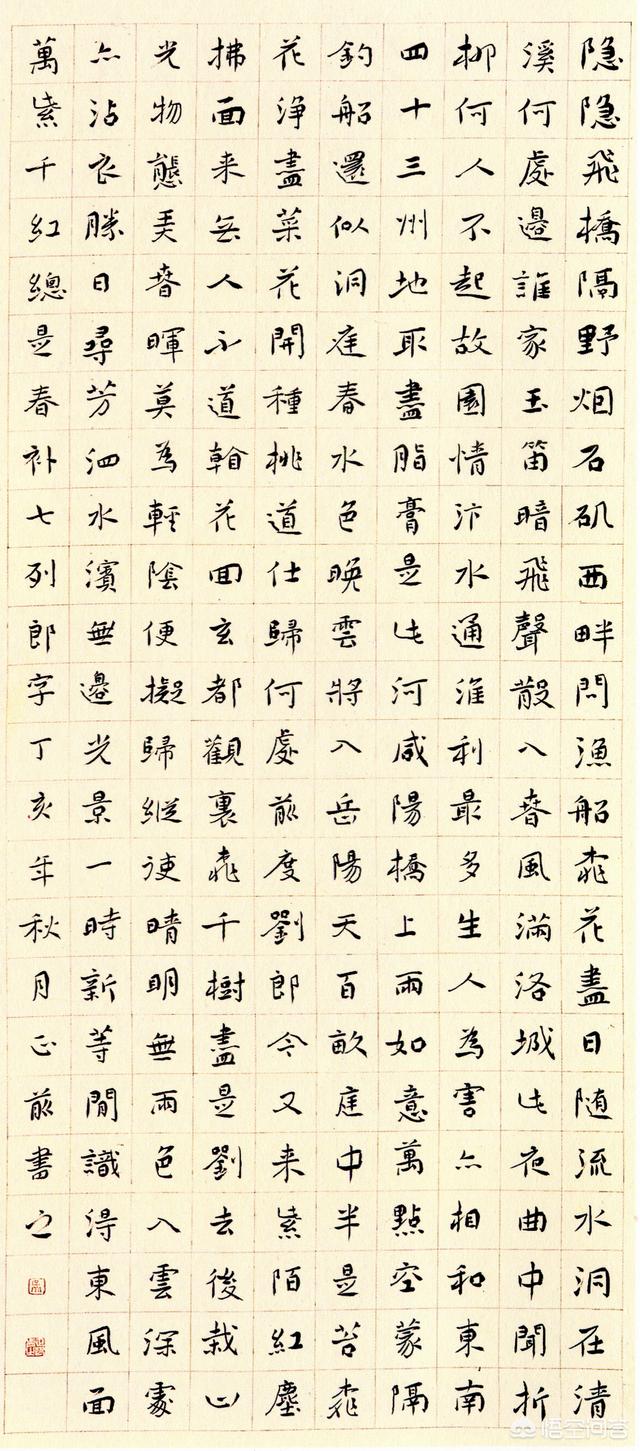 隐隐飛橋隔野烟石矶西畔問漁船桃花盡日随流水洞在清
溪何處邊誰家玉笛暗飛聲散入春風滿洛城此夜曲中聞折
柳何人不起故園情汴水通淮利最多生人為害亦相和東南
四十三州地取盡脂膏是此河咸陽橋上雨如意萬點空蒙隔
釣船還似洞庭春水色晚雲將入岳陽天百畝庭中半是苔桃
花淨盡菜花開種桃道仕歸何處前度劉郎今又来紫陌紅塵
拂面来無人不道看花回玄都觀裏桃千樹盡是劉去後栽山
光物態弄春暉莫為輕陰便擬歸縱使晴明無雨色入雲深處
亦沾衣勝日尋芳泗水濱無邊光景一時新等閒識得東風面
萬紫千紅總是春補七列郎字丁亥年秋月正前書之
悟空问答